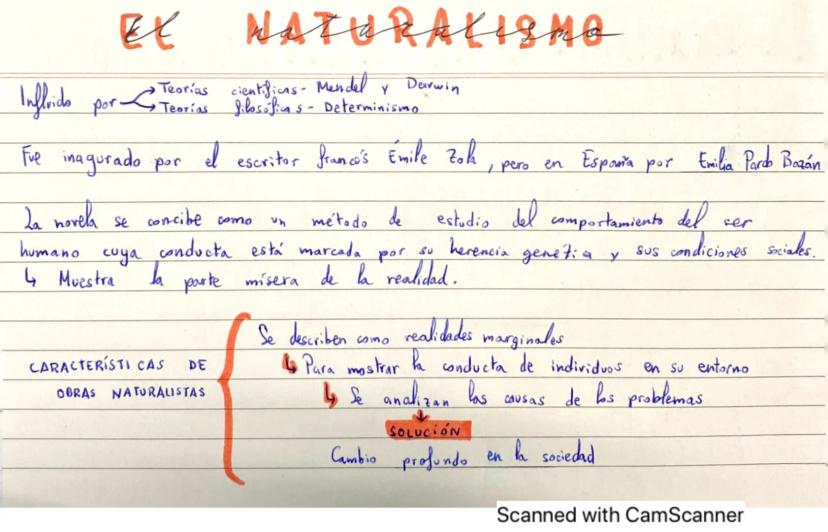 EL NATURALISMO
el naturalismo
Influido por → Teorías científicas - Mendel y Darwin
→ Teorías filosóficas - Determinismo
Fue inagurado por el escritor francés Émile Zola, pero en España por Emilia Pardo Bazán
La novela se concibe como un método de estudio del comportamiento del ser
humano cuya conducta está marcada por su herencia genética y sus condiciones sociales.
↳ Muestra la parte mísera de la realidad.
CARACTERÍSTICAS DE
OBRAS NATURALISTAS
Se describen como realidades marginales
↳ Para mostrar la conducta de individuos en su entorno
↳ Se analizan las causas de los problemas
↓
SOLUCIÓN
Cambio profundo en la sociedad
Scanned with CamScanner